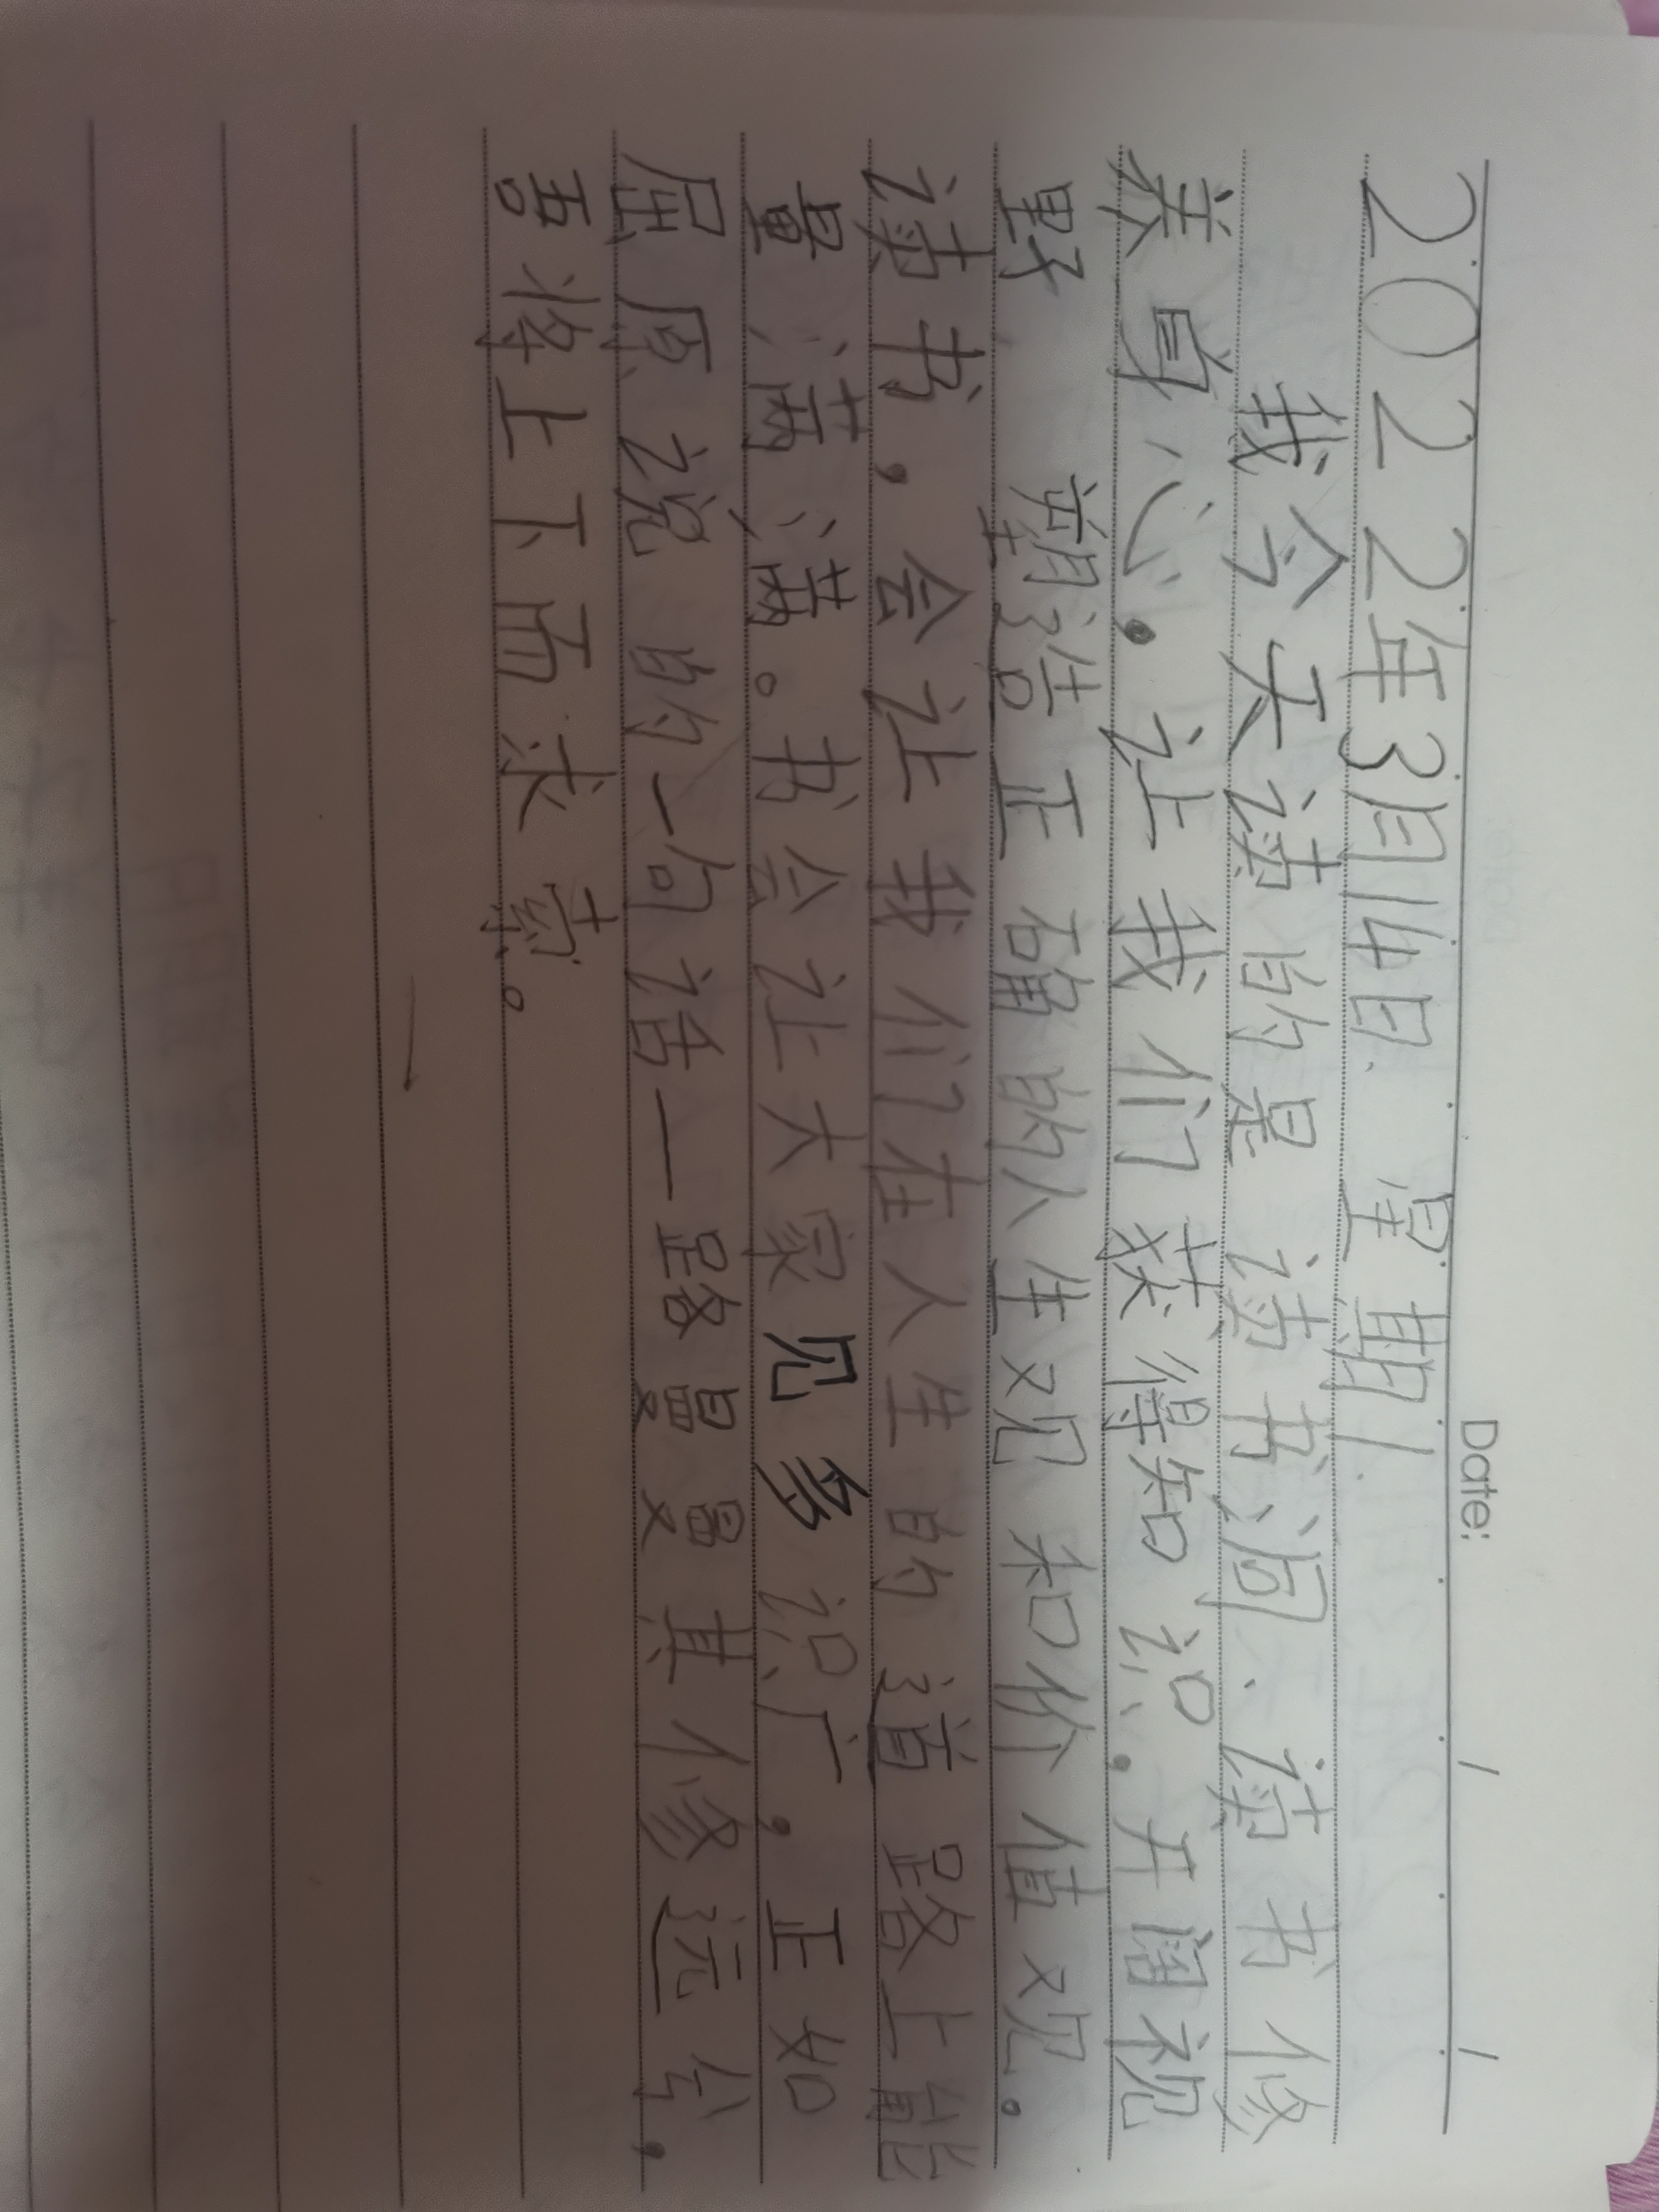 Date: / /
2022年3月14日. 星期1.
我今天读的是读书润、读书修
养身心,让我们获得知识,开阔视
野 塑造正确的人生观和价值观。
读书,会让我们在人生的道路上能
量满满。书会让大家见多识广,正如
屈原说的一句话—路曼曼其修远兮,
吾将上下而求索。